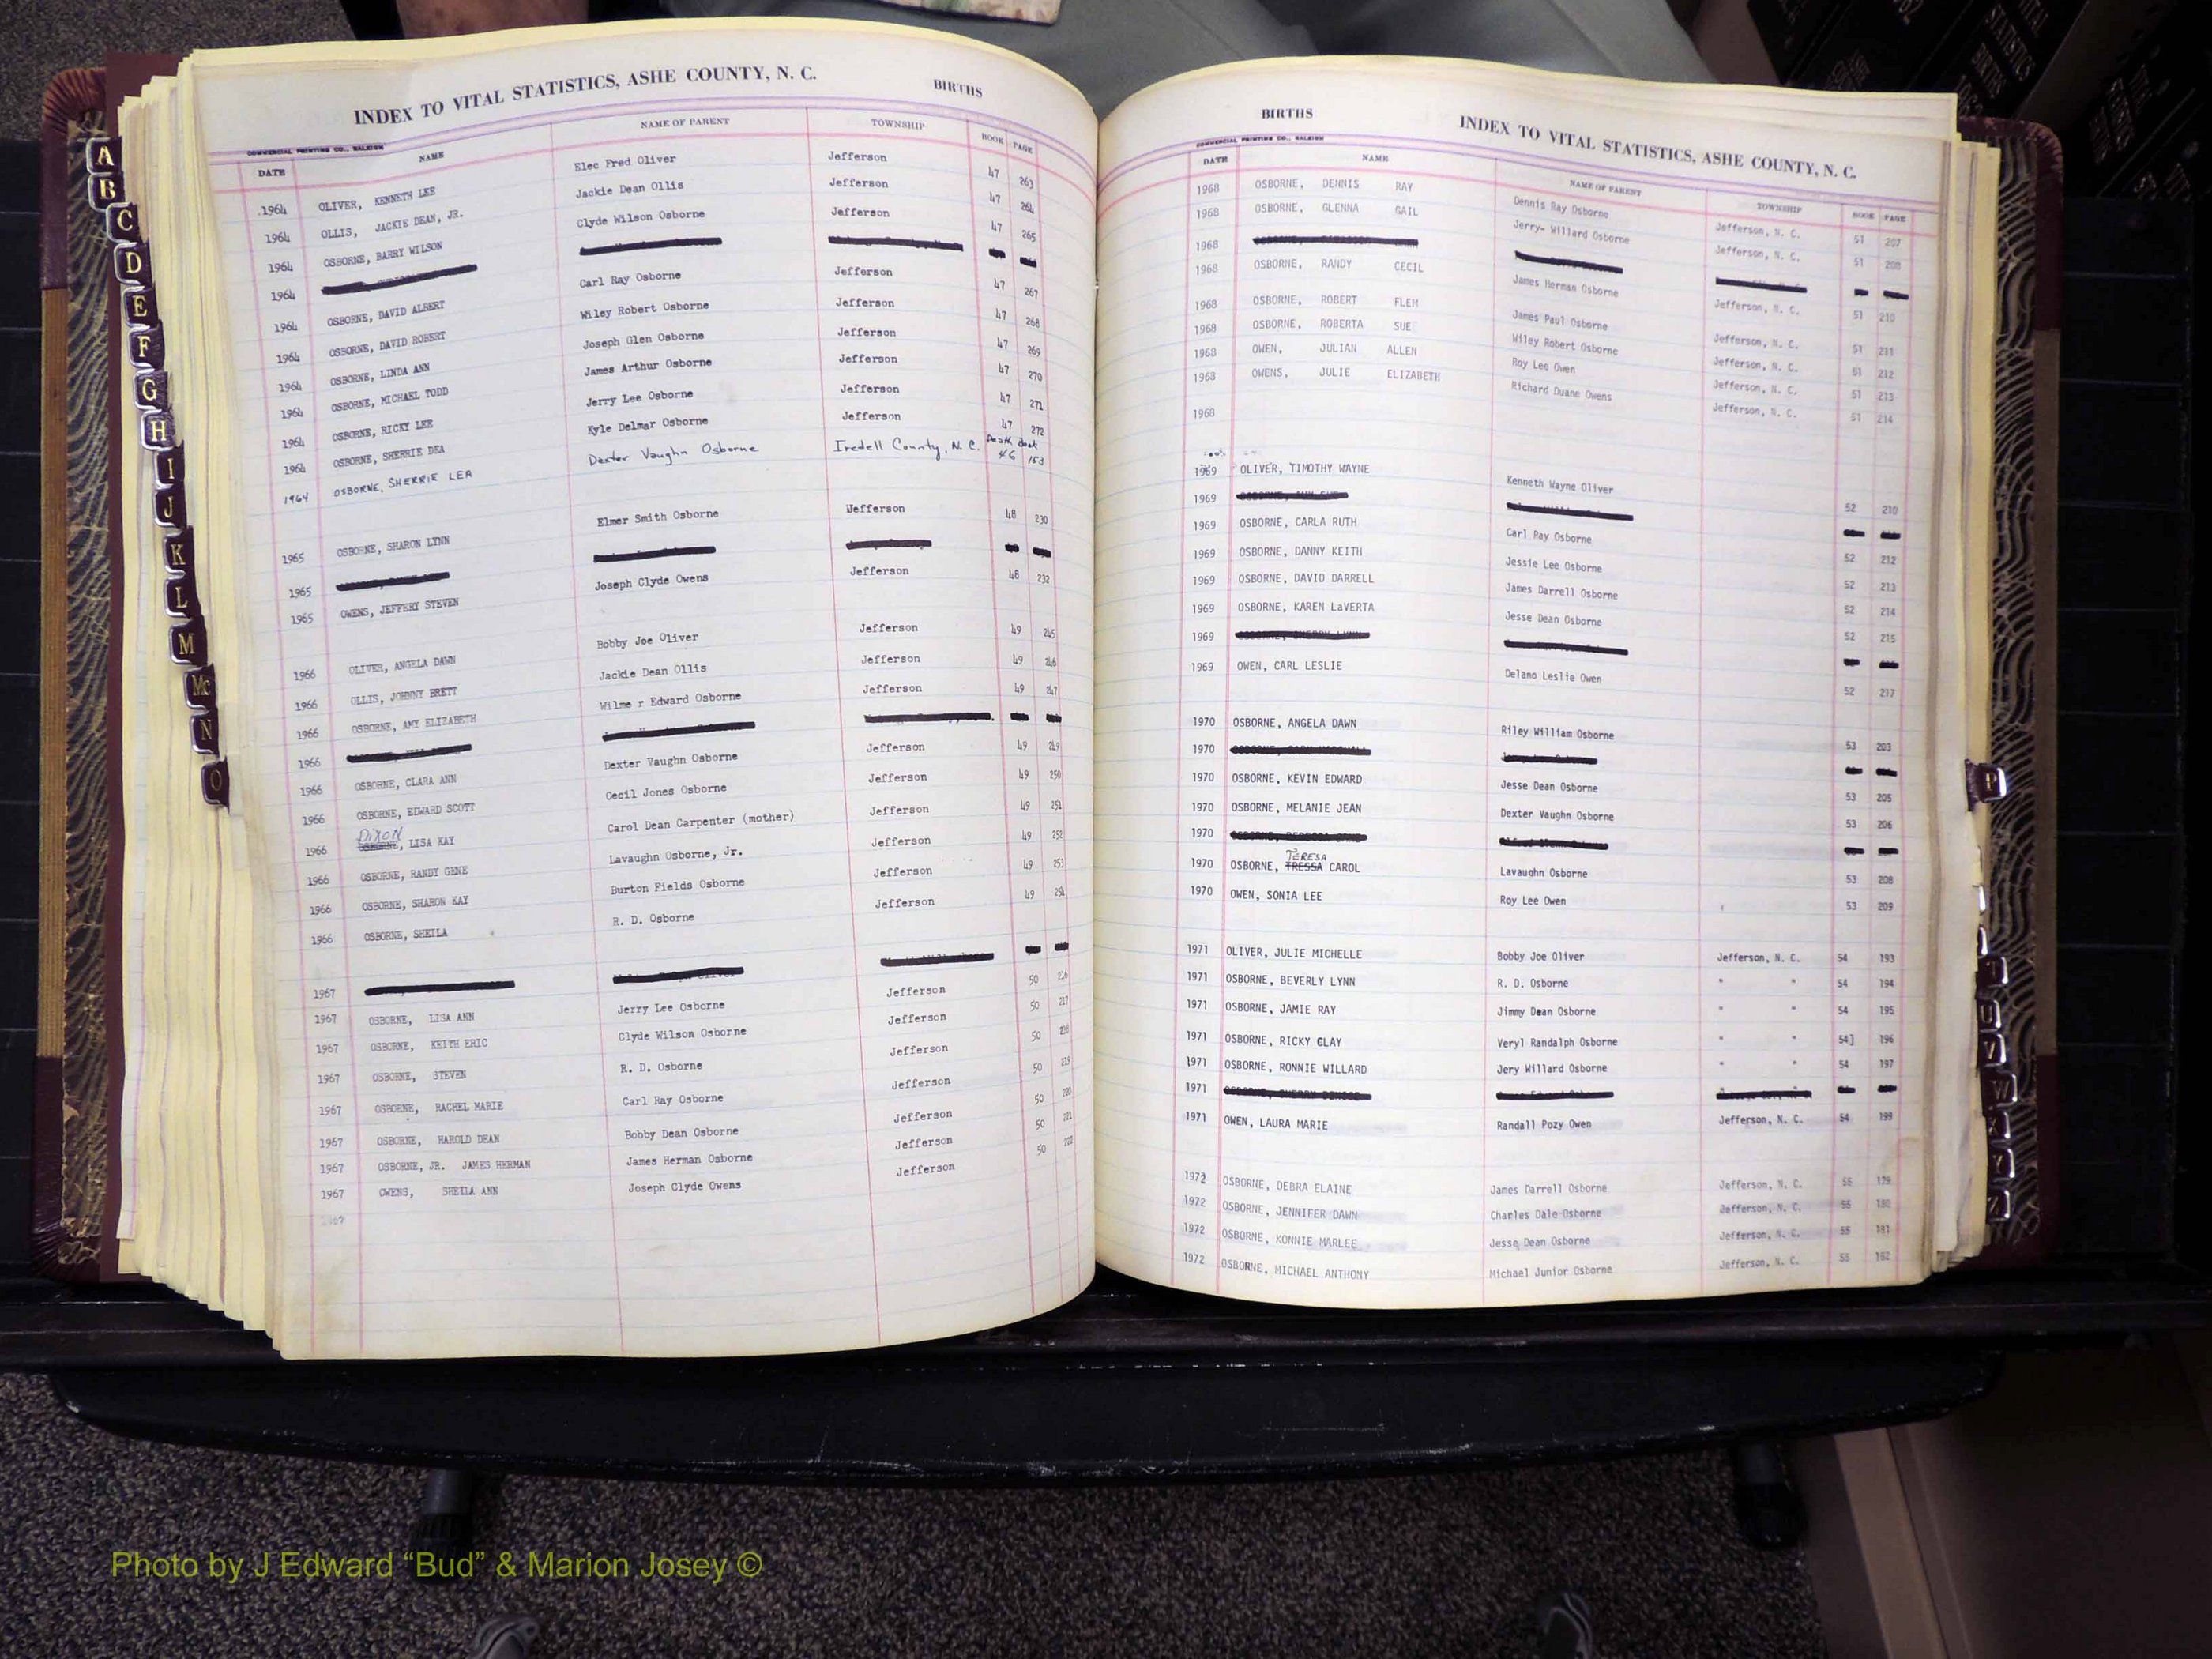 INDEX TO VITAL STATISTICS, ASHE COUNTY, N. C. BIRTHS
COMMERCIAL PRINTING CO., RALEIGH
DATE NAME NAME OF PARENT TOWNSHIP BOOK PAGE
1964 OLIVER, KENNETH LEE Elec Fred Oliver Jefferson 47 263
1964 OLLIS, JACKIE DEAN, JR. Jackie Dean Ollis Jefferson 47 264
1964 OSBORNE, BARRY WILSON Clyde Wilson Osborne Jefferson 47 265
1964
1964 OSBORNE, DAVID ALBERT Carl Ray Osborne Jefferson 47 267
1964 OSBORNE, DAVID ROBERT Wiley Robert Osborne Jefferson 47 268
1964 OSBORNE, LINDA ANN Joseph Glen Osborne Jefferson 47 269
1964 OSBORNE, MICHAEL TODD James Arthur Osborne Jefferson 47 270
1964 OSBORNE, RICKY LEE Jerry Lee Osborne Jefferson 47 271
1964 OSBORNE, SHERRIE DEA Kyle Delmar Osborne Jefferson 47 272
1964 OSBORNE, SHERRIE LEA Dexter Vaughn Osborne Iredell County, N. C. Death Book 46 153
1965 OSBORNE, SHARON LYNN Elmer Smith Osborne Jefferson 48 230
1965
1965 OWENS, JEFFERY STEVEN Joseph Clyde Owens Jefferson 48 232
1966 OLIVER, ANGELA DAWN Bobby Joe Oliver Jefferson 49 245
1966 OLLIS, JOHNNY BRETT Jackie Dean Ollis Jefferson 49 246
1966 OSBORNE, AMY ELIZABETH Wilme r Edward Osborne Jefferson 49 247
1966
1966 OSBORNE, CLARA ANN Dexter Vaughn Osborne Jefferson 49 249
1966 OSBORNE, EDWARD SCOTT Cecil Jones Osborne Jefferson 49 250
DIXON
1966 OSBORNE, LISA KAY Carol Dean Carpenter (mother) Jefferson 49 251
1966 OSBORNE, RANDY GENE Lavaughn Osborne, Jr. Jefferson 49 252
1966 OSBORNE, SHARON KAY Burton Fields Osborne Jefferson 49 253
1966 OSBORNE, SHEILA R. D. Osborne Jefferson 49 254
1967
1967 OSBORNE, LISA ANN Jerry Lee Osborne Jefferson 50 216
1967 OSBORNE, KEITH ERIC Clyde Wilson Osborne Jefferson 50 217
1967 OSBORNE, STEVEN R. D. Osborne Jefferson 50 218
1967 OSBORNE, RACHEL MARIE Carl Ray Osborne Jefferson 50 219
1967 OSBORNE, HAROLD DEAN Bobby Dean Osborne Jefferson 50 220
1967 OSBORNE, JR. JAMES HERMAN James Herman Osborne Jefferson 50 221
1967 OWENS, SHEILA ANN Joseph Clyde Owens Jefferson 50 222
1967
A
B
C
D
E
F
G
H
I
J
K
L
M
Mc
N
O
BIRTHS INDEX TO VITAL STATISTICS, ASHE COUNTY, N. C.
COMMERCIAL PRINTING CO., RALEIGH
DATE NAME NAME OF PARENT TOWNSHIP BOOK PAGE
1968 OSBORNE, DENNIS RAY Dennis Ray Osborne Jefferson, N. C. 51 207
1968 OSBORNE, GLENNA GAIL Jerry- Willard Osborne Jefferson, N. C. 51 208
1968
1968 OSBORNE, RANDY CECIL James Herman Osborne Jefferson, N. C. 51 210
1968 OSBORNE, ROBERT FLEM James Paul Osborne Jefferson, N. C. 51 211
1968 OSBORNE, ROBERTA SUE Wiley Robert Osborne Jefferson, N. C. 51 212
1968 OWEN, JULIAN ALLEN Roy Lee Owen Jefferson, N. C. 51 213
1968 OWENS, JULIE ELIZABETH Richard Duane Owens Jefferson, N. C. 51 214
1968
1969 OLIVER, TIMOTHY WAYNE Kenneth Wayne Oliver 52 210
1969
1969 OSBORNE, CARLA RUTH Carl Ray Osborne 52 212
1969 OSBORNE, DANNY KEITH Jessie Lee Osborne 52 213
1969 OSBORNE, DAVID DARRELL James Darrell Osborne 52 214
1969 OSBORNE, KAREN LaVERTA Jesse Dean Osborne 52 215
1969
1969 OWEN, CARL LESLIE Delano Leslie Owen 52 217
1970 OSBORNE, ANGELA DAWN Riley William Osborne 53 203
1970
1970 OSBORNE, KEVIN EDWARD Jesse Dean Osborne 53 205
1970 OSBORNE, MELANIE JEAN Dexter Vaughn Osborne 53 206
1970
TERESA
1970 OSBORNE, TRESSA CAROL Lavaughn Osborne 53 208
1970 OWEN, SONIA LEE Roy Lee Owen 53 209
1971 OLIVER, JULIE MICHELLE Bobby Joe Oliver Jefferson, N. C. 54 193
1971 OSBORNE, BEVERLY LYNN R. D. Osborne " " 54 194
1971 OSBORNE, JAMIE RAY Jimmy Dean Osborne " " 54 195
1971 OSBORNE, RICKY CLAY Veryl Randalph Osborne " " 54] 196
1971 OSBORNE, RONNIE WILLARD Jery Willard Osborne " " 54 197
1971
1971 OWEN, LAURA MARIE Randall Pozy Owen Jefferson, N. C. 54 199
1972 OSBORNE, DEBRA ELAINE James Darrell Osborne Jefferson, N. C. 55 179
1972 OSBORNE, JENNIFER DAWN Charles Dale Osborne Jefferson, N. C. 55 180
1972 OSBORNE, KONNIE MARLEE Jesse Dean Osborne Jefferson, N. C. 55 181
1972 OSBORNE, MICHAEL ANTHONY Michael Junior Osborne Jefferson, N. C. 55 182
P
T
U
V
W
Y
Z
Photo by J Edward “Bud” & Marion Josey ©